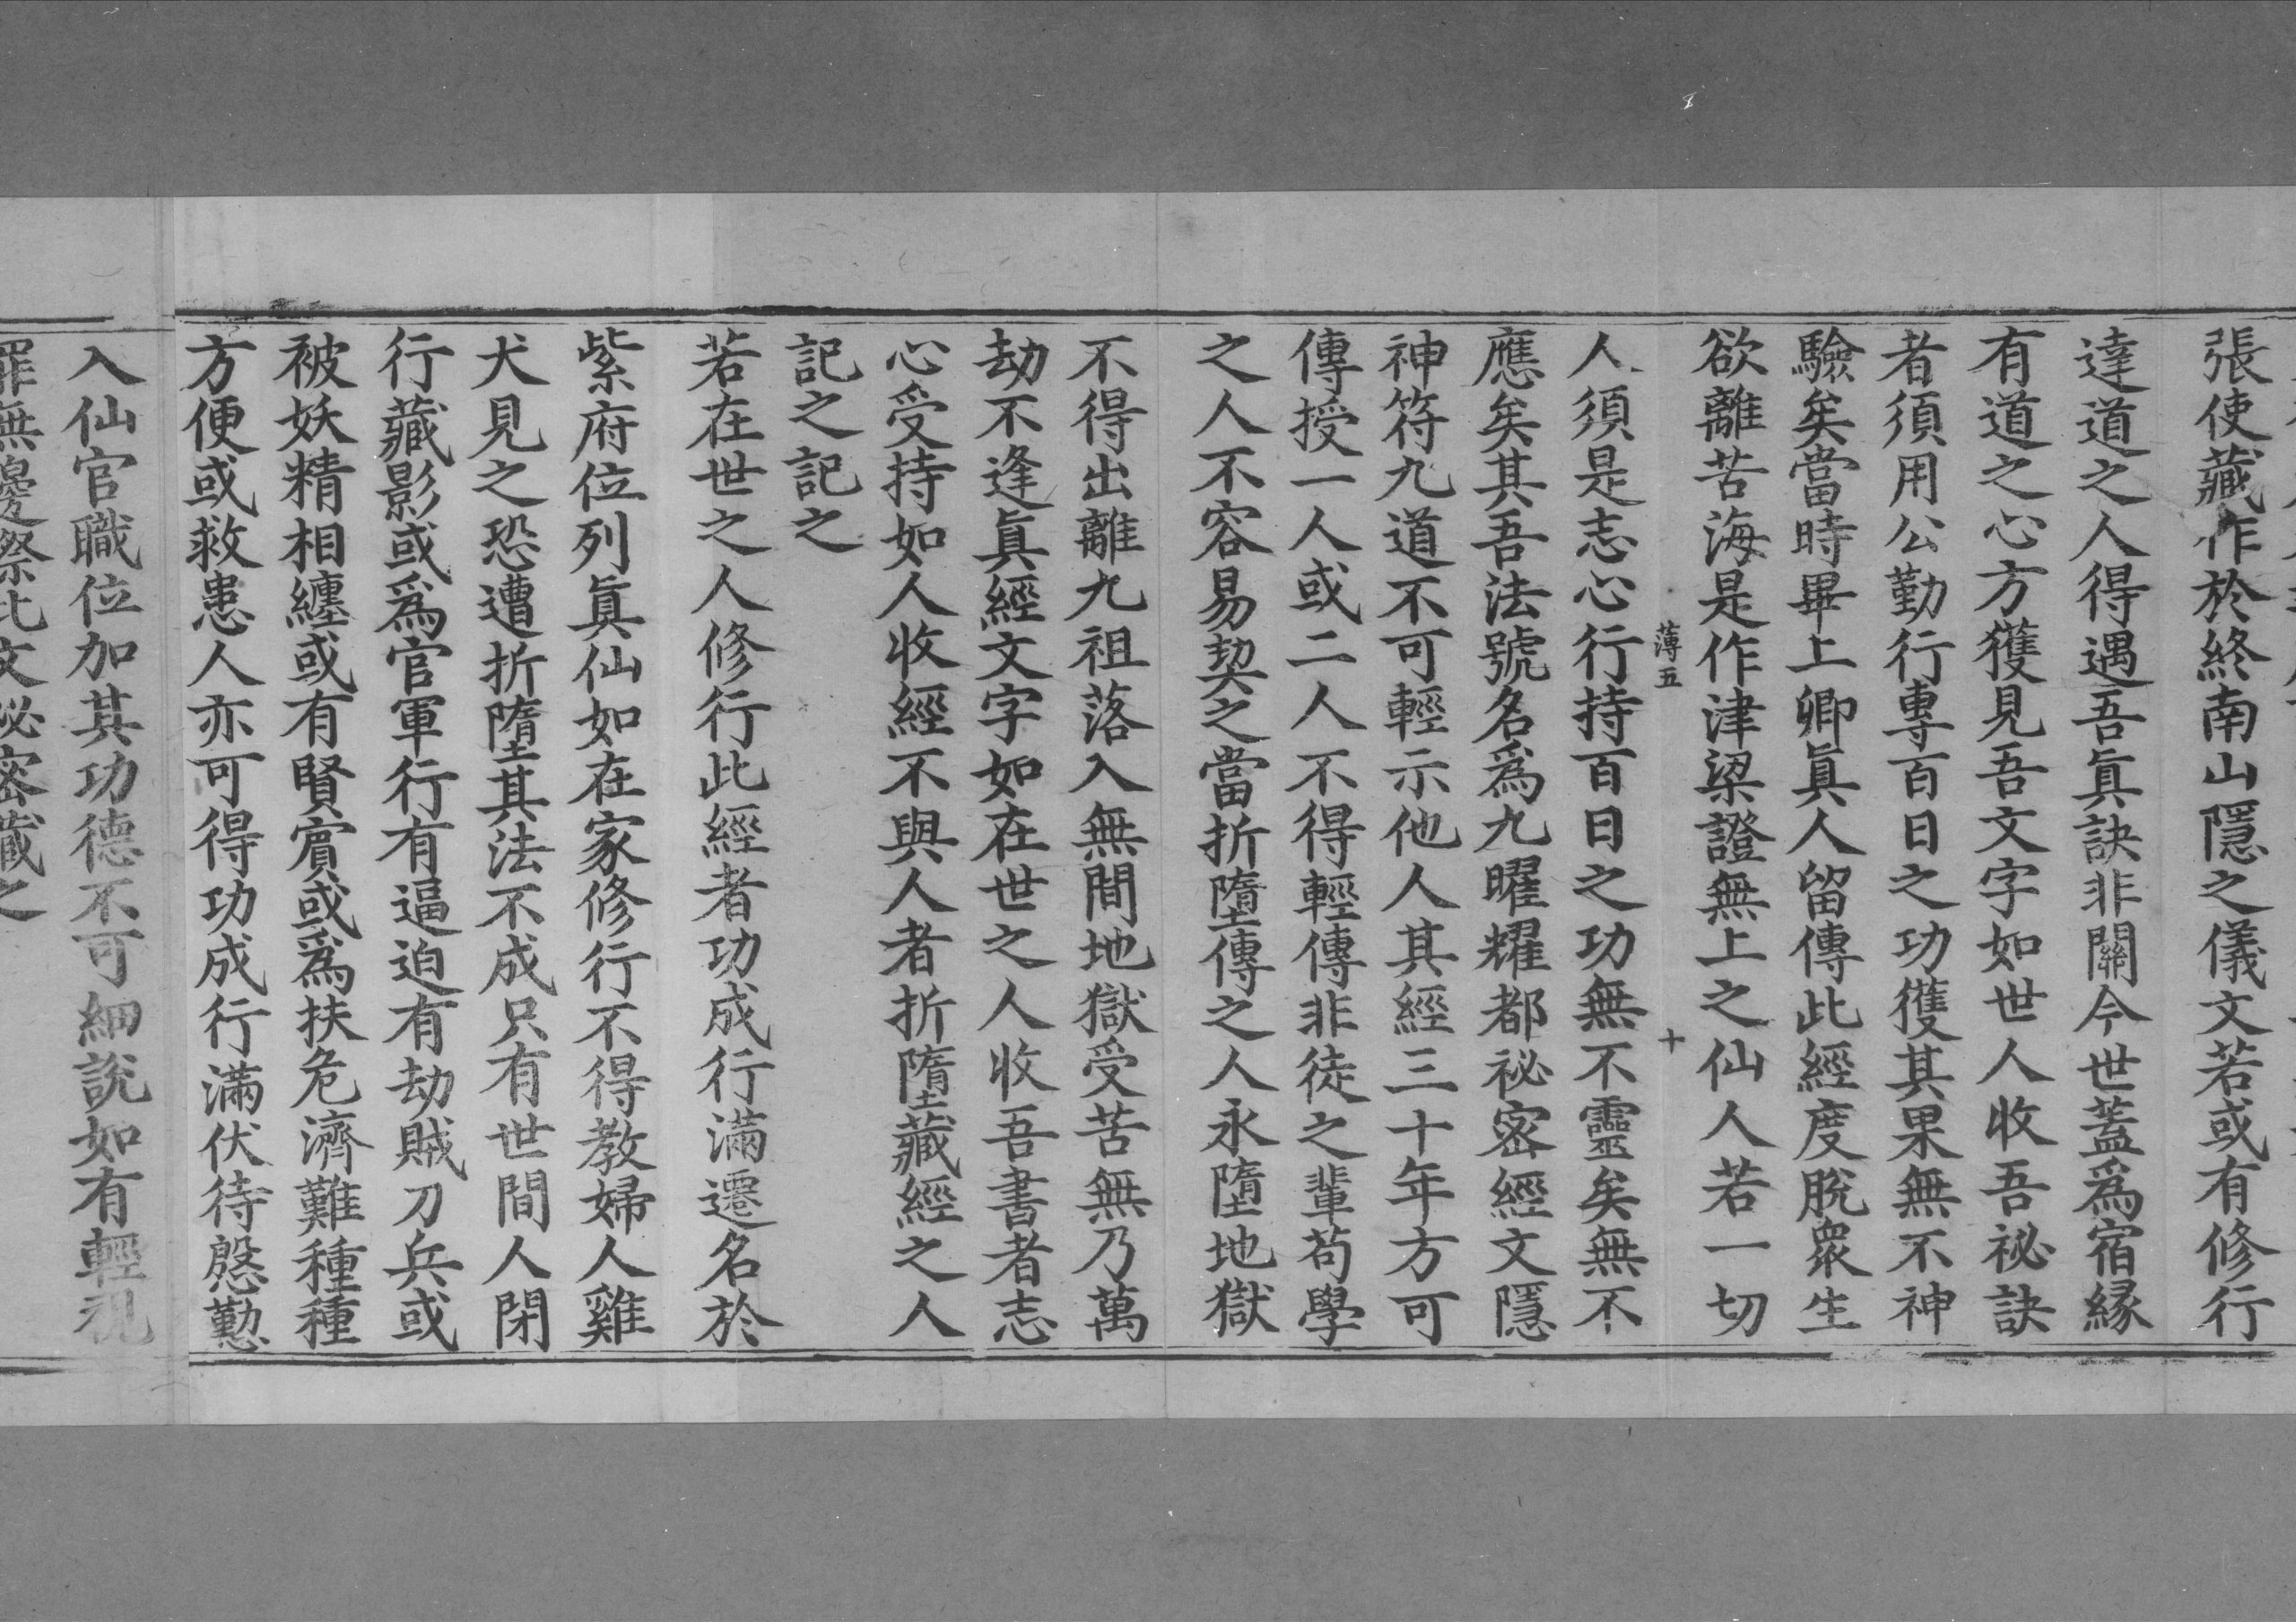 張使藏作於終南山隱之儀文若或有修行
達道之人得遇吾眞訣非關今世蓋爲宿縁
有道之心方獲見吾文字如世人收吾祕訣
者須用公勤行專百日之功獲其果無不神
驗矣當時畢上卿眞人留傳此經度脫衆生
欲離苦海是作津梁證無上之仙人若一切
薄五
十
人須是志心行持百日之功無不靈矣無不
應矣其吾法號名爲九曜耀都祕密經文隱
神符九道不可輕示他人其經三十年方可
傳授一人或二人不得輕傳非徒之輩苟學
之人不容易契之當折墮傳之人永墮地獄
不得出離九祖落入無間地獄受苦無乃萬
劫不逢眞經文字如在世之人收吾書者志
心受持如人收經不與人者折墮藏經之人
記之記之
若在世之人修行此經者功成行滿遷名於
紫府位列眞仙如在家修行不得教婦人雞
犬見之恐遭折墮其法不成只有世間人閉
行藏影或爲官軍行有逼迫有劫賊刀兵或
被妖精相纏或有賢賓或爲扶危濟難種種
方便或救患人亦可得功成行滿伏待慇懃
入仙官職位加其功德不可細說如有輕視
罪無邊祭此文祕密藏之